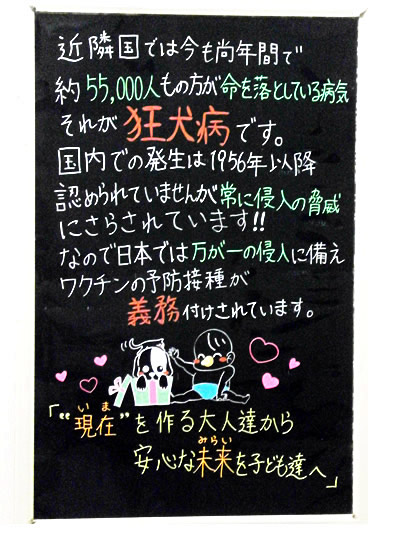 近隣国では今も尚年間で
約55,000人もの方が命を落としている病気
それが狂犬病です。
国内での発生は1956年以降
認められていませんが常に侵入の脅威
にさらされています!!
なので日本では万が一の侵入に備え
ワクチンの予防接種が
義務付けされています。
いま
「"現在"を作る大人達から
みらい
安心な未来を子ども達へ」